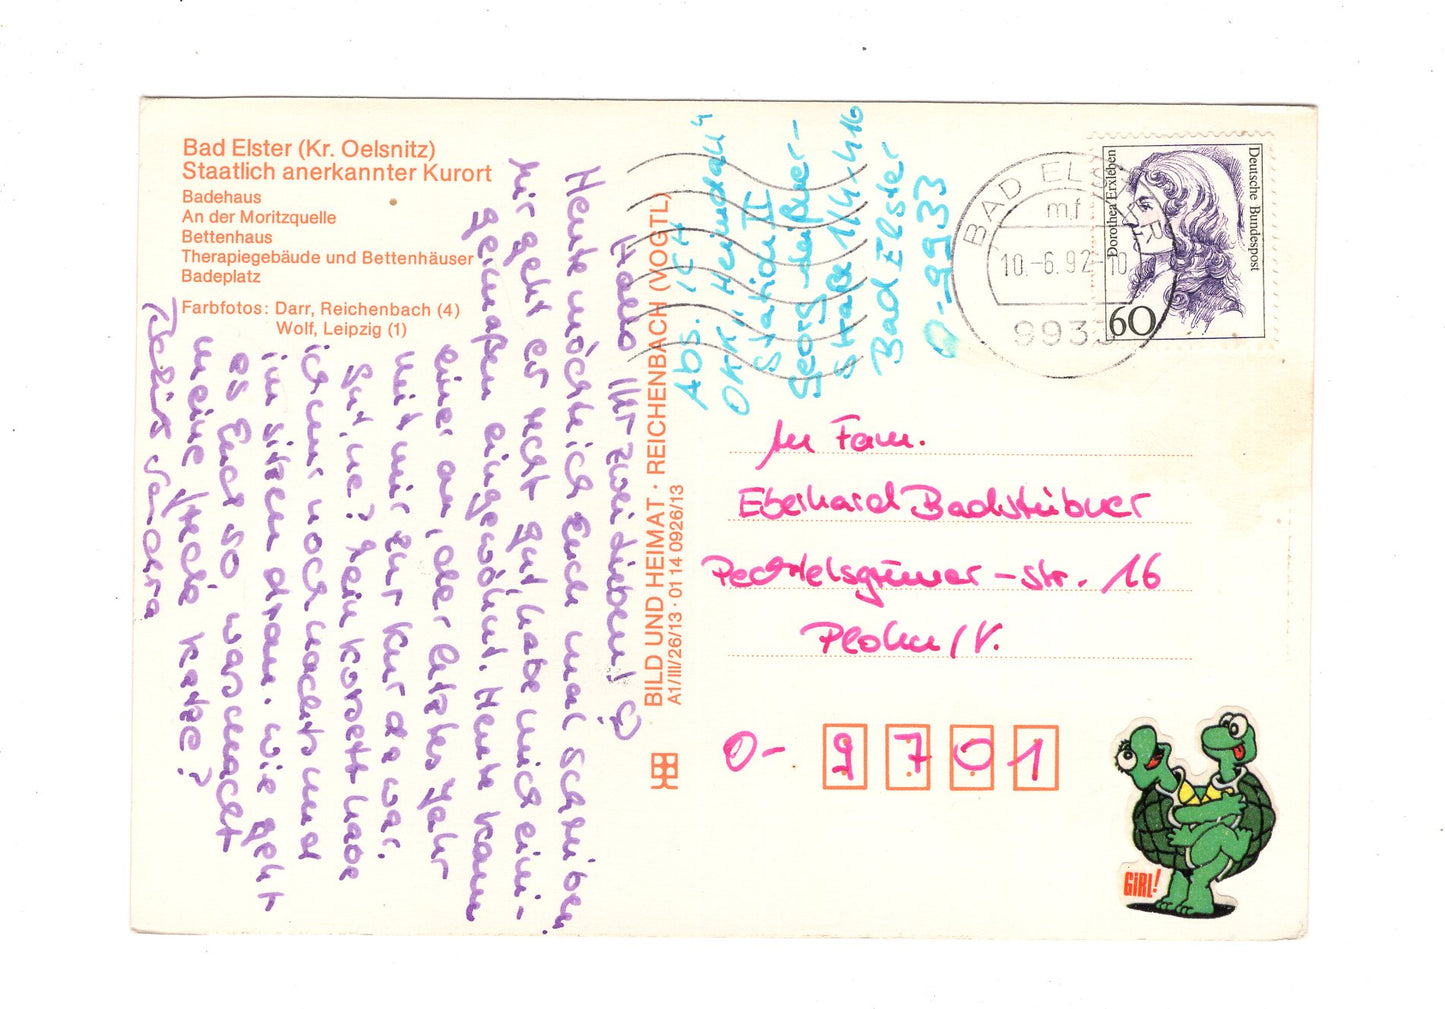 Bad Elster (Kr. Oelsnitz)
Staatlich anerkannter Kurort
Badehaus
An der Moritzquelle
Bettenhaus
Therapiegebäude und Bettenhäuser
Badeplatz
Farbfotos: Darr, Reichenbach (4)
Wolf, Leipzig (1)
Hallo Ihr zwei Lieben!
Heute möchte ich Euch mal schreiben
Mir geht es recht gut, habe mich eini-
germaßen eingewöhnt. Heute kam
einer an, der letztes Jahr
mit mir zur Kur da war.
Gut, ne? Kein Korsett habe
ich nur noch nachts und
im sitzen dran. Wie geht
es Euch so was macht
meine Katze?
Sandra
BILD UND HEIMAT · REICHENBACH (VOGTL)
A1/III/26/13 · 01 14 0926/13
Abs. ICH
OKK "Heimdall"
Station II
Georg-
Straße 14-16
Bad Elster
O-9933
BAD ELSTER
mf
10.-6.92-10
9933
Dorothea Erxleben
Deutsche Bundespost
60
An Fam.
Eberhard Backstübner
Pechtelsgrüner-Str. 16
Plohn/V.
O-9701
GIRL!